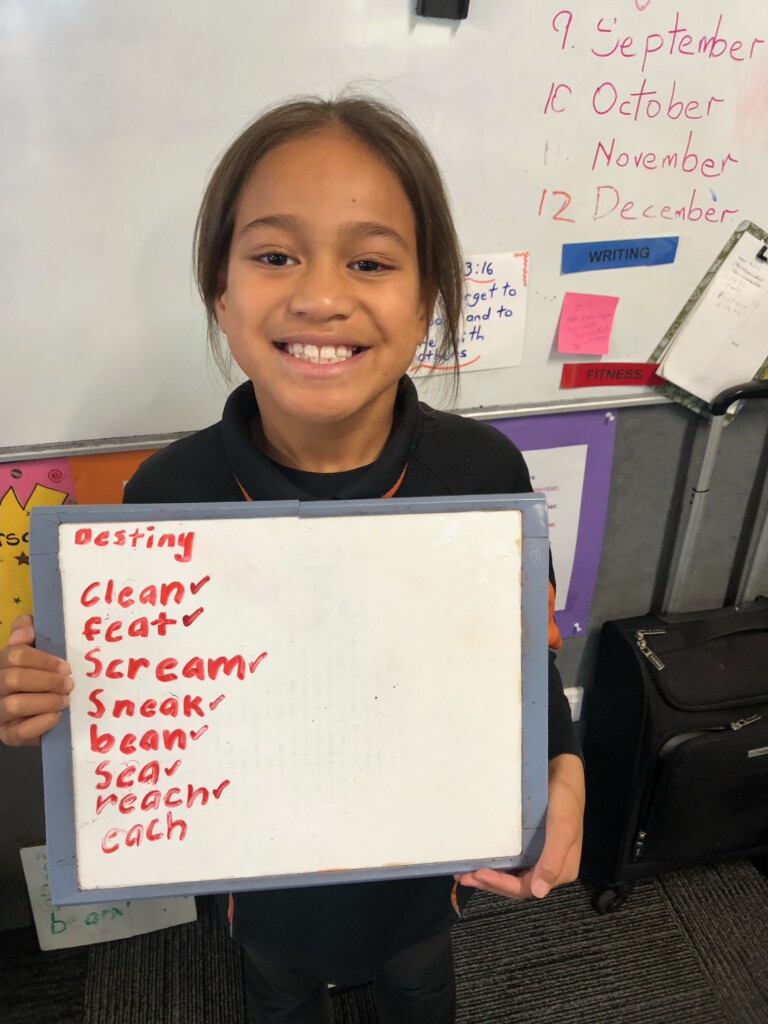 9. September
10 October
11. November
12 December
WRITING
3:16
get to
and to
with
others
FITNESS
Destiny
clean✓
feat✓
Scream✓
Sneak✓
bean✓
sea✓
reach✓
each